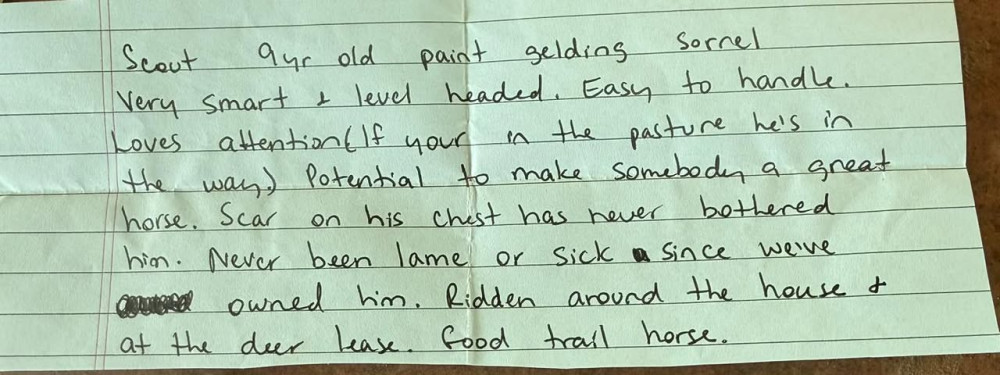 Scout 9yr old paint gelding Sorrel
Very smart & level headed. Easy to handle.
Loves attention (If your in the pasture he's in
the way) Potential to make somebody a great
horse. Scar on his chest has never bothered
him. Never been lame or sick since we've
owned him. Ridden around the house &
at the deer lease. Good trail horse.